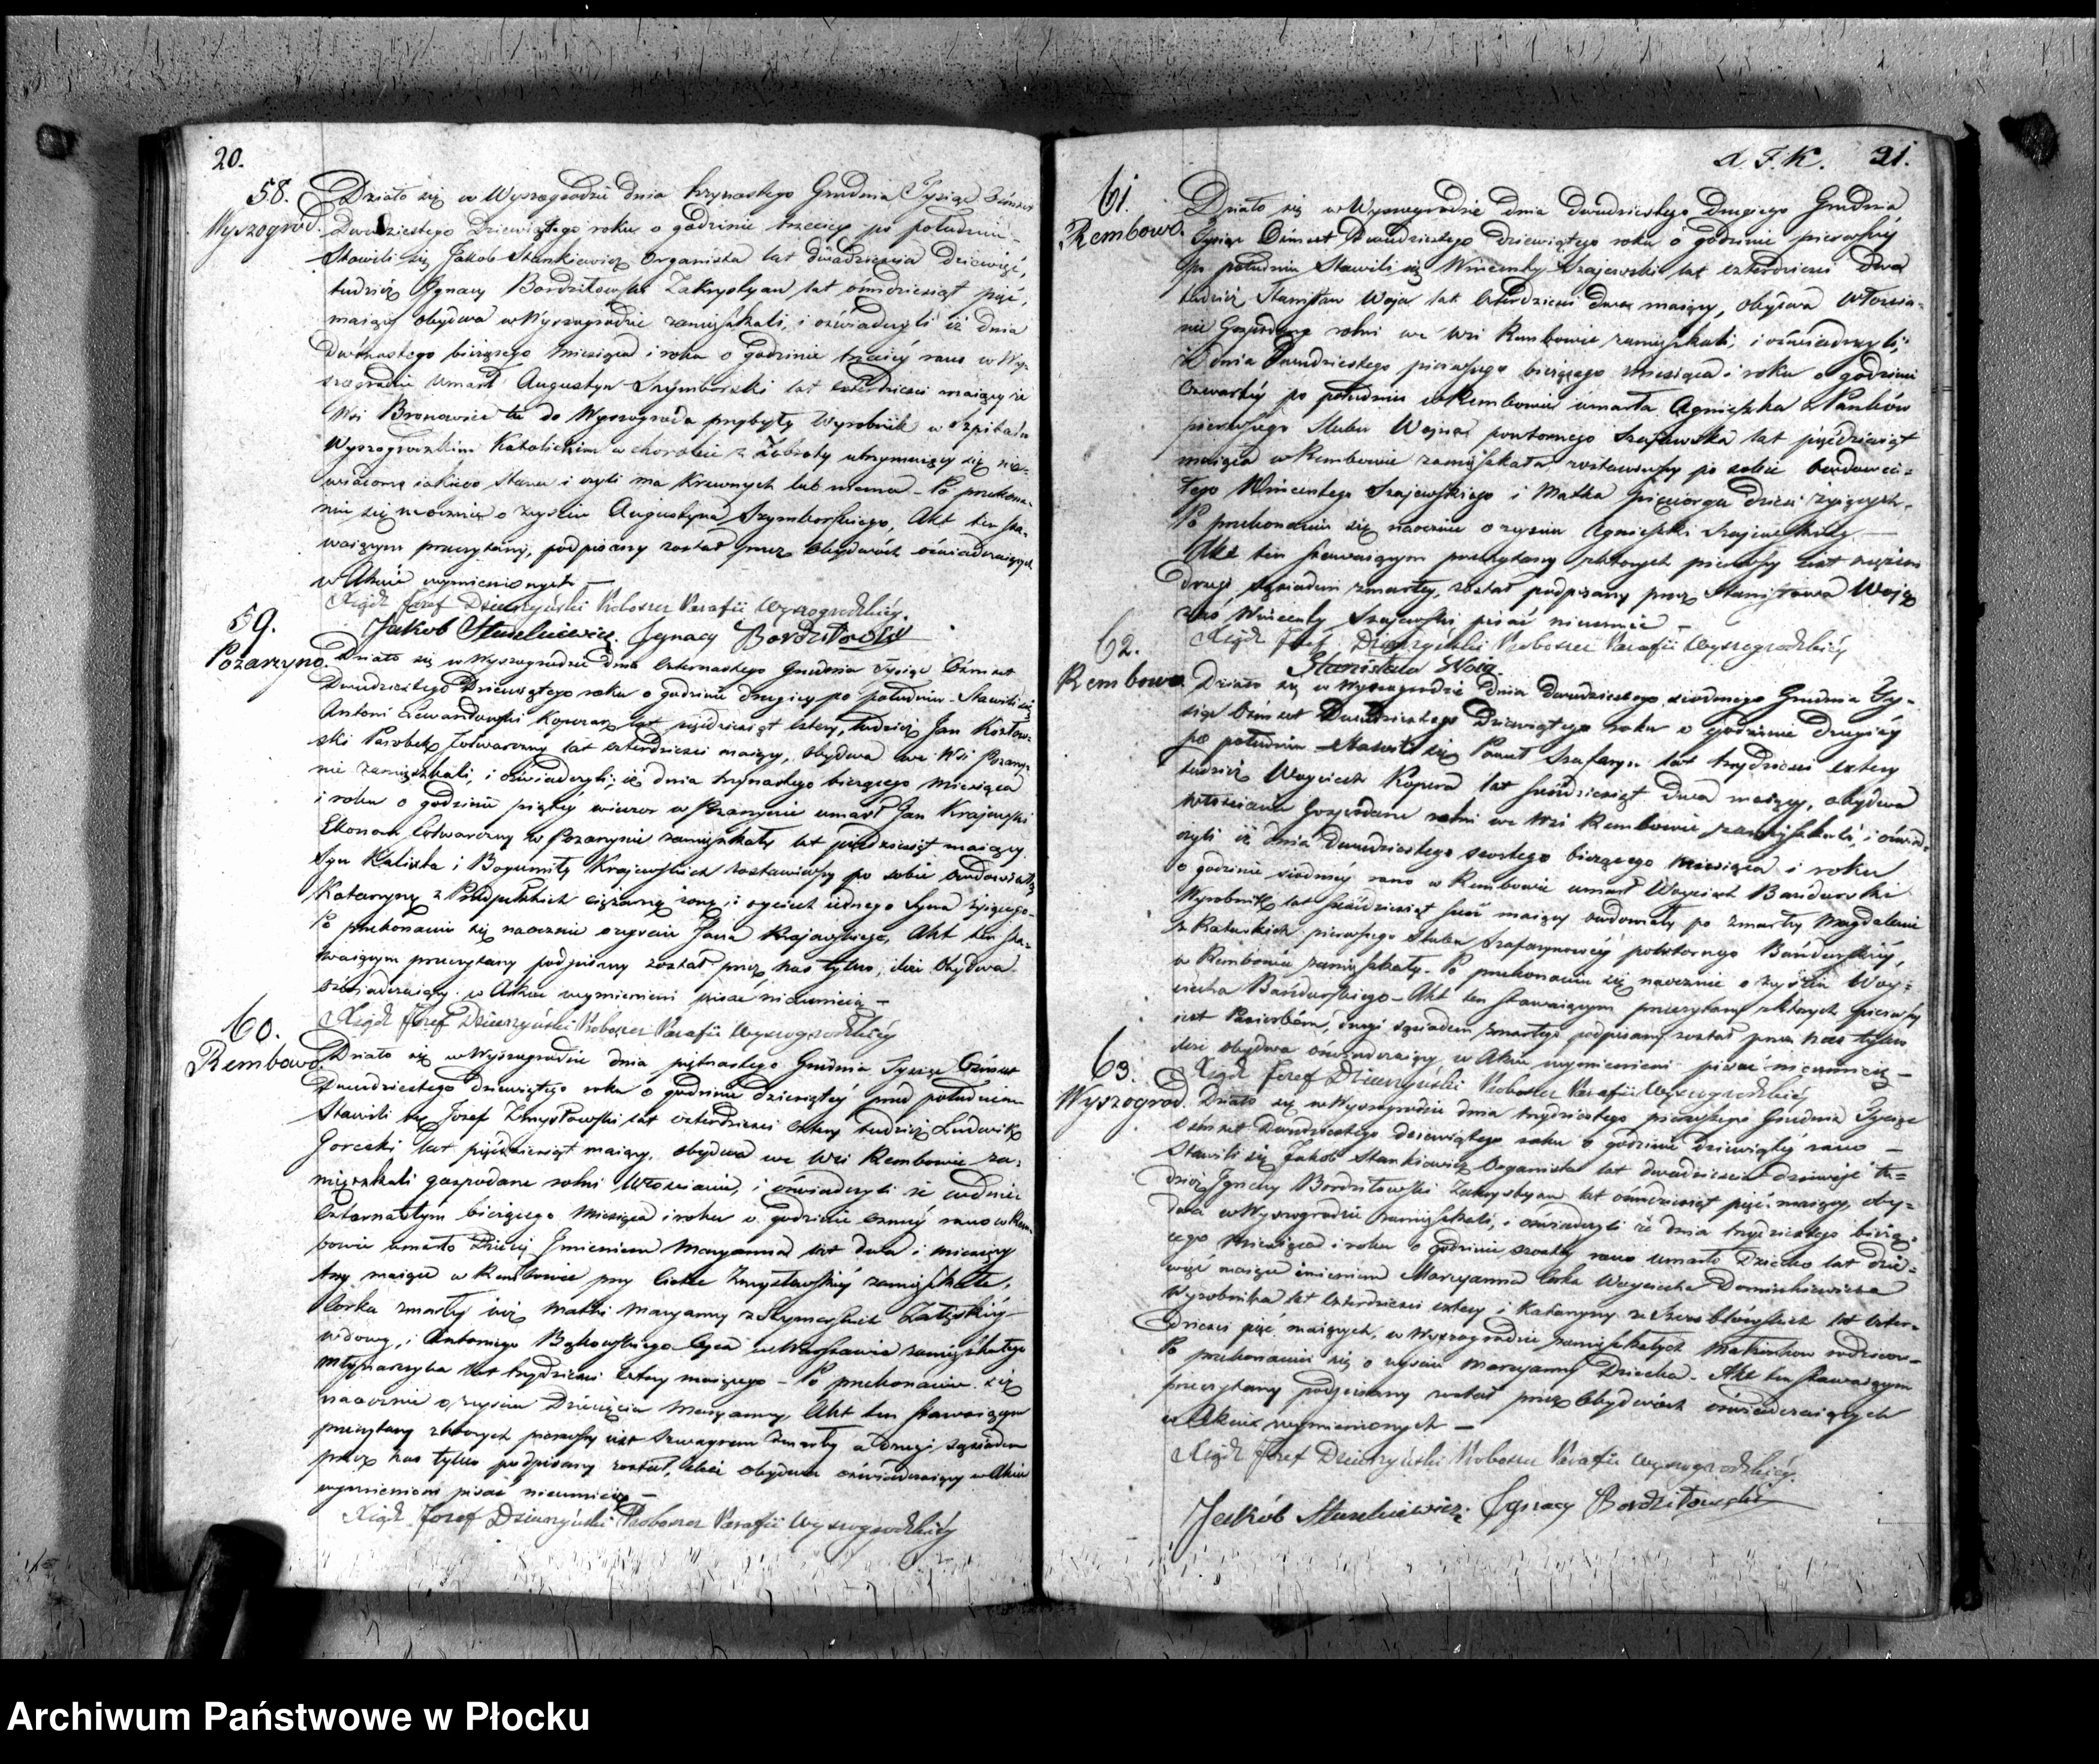 20.
58.
Wyszogrod.
Działo się w Wyszogrodzie dnia trzynastego Grudnia Tysiąc Ośmset
Dwudziestego Dziewiątego roku o godzinie trzeciey po południu –
Stawili się Jakob Stankiewicz Organista lat dwadzieścia dziewięć,
tudzież Ignacy Bordziłowski Zakrystyan lat ośmdziesiąt pięć,
maiący obydwa w Wyszogrodzie zamięszkali, i oświadczyli iż dnia
dwunastego bieżącego miesiąca i roku o godzinie trzeciey rano w Wy-
szogrodzie umarł Augustyn Szymborski lat czterdzieści maiący ze
Wsi Bronowice tu do Wyszogroda przybyły Wyrobnik w Szpitalu
Wyszogrodzkim Katolickim w chorobie z Żebroty utrzymuiący się nie-
wiadomo iakiego stanu i czyli ma Krewnych lub niema – Po przekona-
niu się naocznie o zejściu Augustyna Szymborskiego, Akt ten sta-
waiącym przeczytany, podpisany został przez Obydwóch oświadczaiących
w Akcie wymienionych –
Xiądz Jozef Dzierzyński Proboszcz Parafii Wyszogrodzkiey.
Jakob Stankiewicz. Ignacy Bordziłowski
59.
Pozarzyno.
Działo się w Wyszogrodzie dnia czternastego Grudnia Tysiąc Ośmset
Dwudziestego Dziewiątego roku o godzinie drugiey po południu. Stawili się
Antoni Lewandowski lat pięćdziesiąt cztery, tudzież Jan Kozłow-
ski Parobek folwarczny lat czterdzieści maiący, obydwa we Wsi Pozarzy-
nie zamięszkali, i oświadczyli; iż dnia trzynastego bieżącego miesiąca
i roku o godzinie piątey wieczor w Pozarzynie umarł Jan Krajewski
Ekonom folwarczny w Pozarzynie zamięszkały lat pięćdziesiąt maiący.
Syn Kalixta i Bogumiły Krajewskich zostawiwszy po sobie owdowiałą
Katarzynę z ciężarną żonę, i oyciech iednego Syna żyiącego –
Po przekonaniu się naocznie o zejściu Jana Krajewskiego, Akt ten sta-
waiącym przeczytany podpisany został przez nas tylko, ileż Obydwa
oświadczaiący w Akcie wymienieni pisać nieumieią –
Xiądz Jozef Dzierzyński Proboszcz Parafii Wyszogrodzkiey
60.
Rembowo.
Działo się w Wyszogrodzie dnia piętnastego Grudnia Tysiąc Ośmset
Dwudziestego dziewiątego roku o godzinie dziesiątey przed południem
Stawili się Jozef Zmysłowski lat czterdzieści cztery tudzież Ludwik
Gorecki lat pięćdziesiąt maiący, obydwa we Wsi Rembowie za-
mięszkali gospodarze rolni Włościanie, i oświadczyli że w dniu
Czternastym bieżącego miesiąca i roku o godzinie osmey rano w Rem-
bowie umarło Dziecię Imieniem Maryanna lat dwa i miesięcy
trzy maiące w Rembowie przy Ciotce Zmysłowskiey zamięszkałe.
Corka zmarłey iuż matki Maryanny z
wdowy, i Antoniego Bąkowskiego Oyca w Warszawie zamięszkałego
Młynarczyka lat trzydzieści cztery maiącego – Po przekonaniu się
naocznie o zejściu Dziecięcia Maryanny, Akt ten stawaiącym
przeczytany z ktorych pierwszy iest Szwagrem Zmarłey a drugi sąsiadem
przez nas tylko podpisany został, ileż obydwa oświadczaiący w Akcie
wymienieni pisać nieumieią –
Xiądz Jozef Dzierzyński Proboszcz Parafii Wyszogrodzkiey
A. Z. K. 21.
61.
Rembowo.
Działo się w Wyszogrodzie dnia dwudziestego Drugiego Grudnia
Tysiąc Ośmset Dwudziestego dziewiątego roku o godzinie pierwszey
po południu Stawili się Wincenty Szajewski lat czterdzieści dwa
tudzież Stanisław Woja lat czterdzieści dwa maiący, obydwa włościa-
nie Gospodarze rolni we wsi Rembowie zamięszkali, i oświadczyli,
iż dnia Dwudziestego pierwszego bieżącego miesiąca i roku o godzinie
czwartey po południu w Rembowie umarła Agnieszka z Panków
pierwszego Slubu powtornego Szajewska lat pięćdziesiąt
maiąca w Rembowie zamięszkała zostawiwszy po sobie owdowia-
łego Wincentego Szajewskiego i Matka pięciorga dzieci żyiących.
Po przekonaniu się naocznie o zejściu Agnieszki Szajewskiey –
Akt ten stawaiącym przeczytany z ktorych pierwszy iest mężem
drugi sąsiadem zmarłey, został podpisany przez Stanisława Woję
zaś Wincenty Szajewski pisać nieumie –
Xiądz Jozef Dzierzyński Proboszcz Parafii Wyszogrodzkiey
Stanisław Woia
62.
Rembowo
Działo się w Wyszogrodzie dnia dwudziestego siodmego Grudnia Ty-
siąc Ośmset Dwudziestego Dziewiątego roku o godzinie drugiey
po południu Stawili się Paweł Szafaryn lat trzydzieści cztery
tudzież Woyciech Kopera lat sześćdziesiąt dwa maiący, obydwa
włościanie Gospodarze rolni we Wsi Rembowie zamięszkali, i oświad-
czyli iż dnia dwudziestego szostego bieżącego miesiąca i roku
o godzinie siodmey rano w Rembowie umarł Woyciech Bandurski
Wyrobnik lat sześćdziesiąt sześć maiący owdowiały po zmarłey Magdalenie
z Ratuskich pierwszego Slubu Szafarynowey powtornego Bandurskiey,
w Rembowie zamięszkały – Po przekonaniu się naocznie o zejściu Woy-
ciecha Bandurskiego – Akt ten stawaiącym przeczytany z ktorych pierwszy
iest Pasierbem, drugi sąsiadem zmarłego podpisany został przez nas tylko
ileż obydwa oświadczaiący w Akcie wymienieni pisać nieumieią –
Xiądz Jozef Dzierzyński Proboszcz Parafii Wyszogrodzkiey
63.
Wyszogrod.
Działo się w Wyszogrodzie dnia trzydziestego pierwszego Grudnia Tysiąc
Ośmset Dwudziestego dziewiątego roku o godzinie dziewiątey rano –
Stawili się Jakob Stankiewicz Organista lat dwadzieścia dziewięć tu-
dzież Ignacy Bordziłowski Zakrystyan lat ośmdziesiąt pięć maiący, oby-
dwa w Wyszogrodzie zamięszkali, i oświadczyli że dnia trzydziestego bieżą-
cego miesiąca i roku o godzinie szostey rano umarło Dziecko lat dzie-
więć maiące imieniem Maryanna Corka Woyciecha Dominkiewicza
Wyrobnika lat czterdzieści cztery i Katarzyny ze lat czter-
dzieści pięć maiących, w Wyszogrodzie zamięszkałych Małżonkow rodzicow –
Po przekonaniu się o zejściu Maryanny Dziecka – Akt ten stawaiącym
przeczytany podpisany został przez Obydwóch oświadczaiących
w Akcie wymienionych –
Xiądz Jozef Dzierzyński Proboszcz Parafii Wyszogrodzkiey.
Jakób Stankiewicz. Ignacy Bordziłowski
Archiwum Państwowe w Płocku